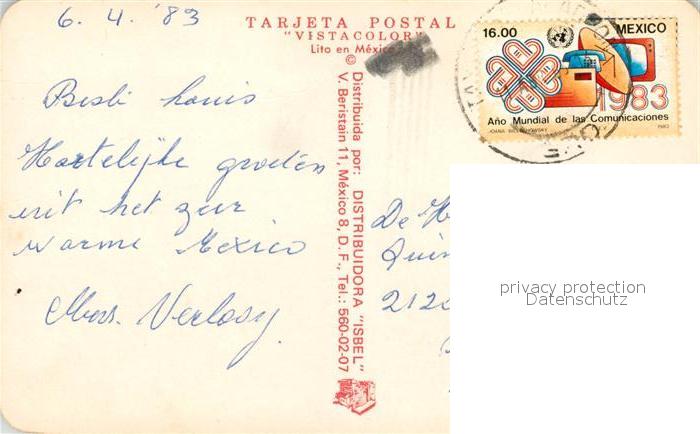 6.4.'83
TARJETA POSTAL
"VISTACOLOR"
Lito en México
©
16.00
MEXICO
1983
Año Mundial de las Comunicaciones
1983
Hartelijke groeten
uit het zeer
warme Mexico
Distribuida por: DISTRIBUIDORA "ISBEL"
V. Beristain 11, México 8, D. F., Tel.: 560-02-07
De
212
privacy protection
Datenschutz